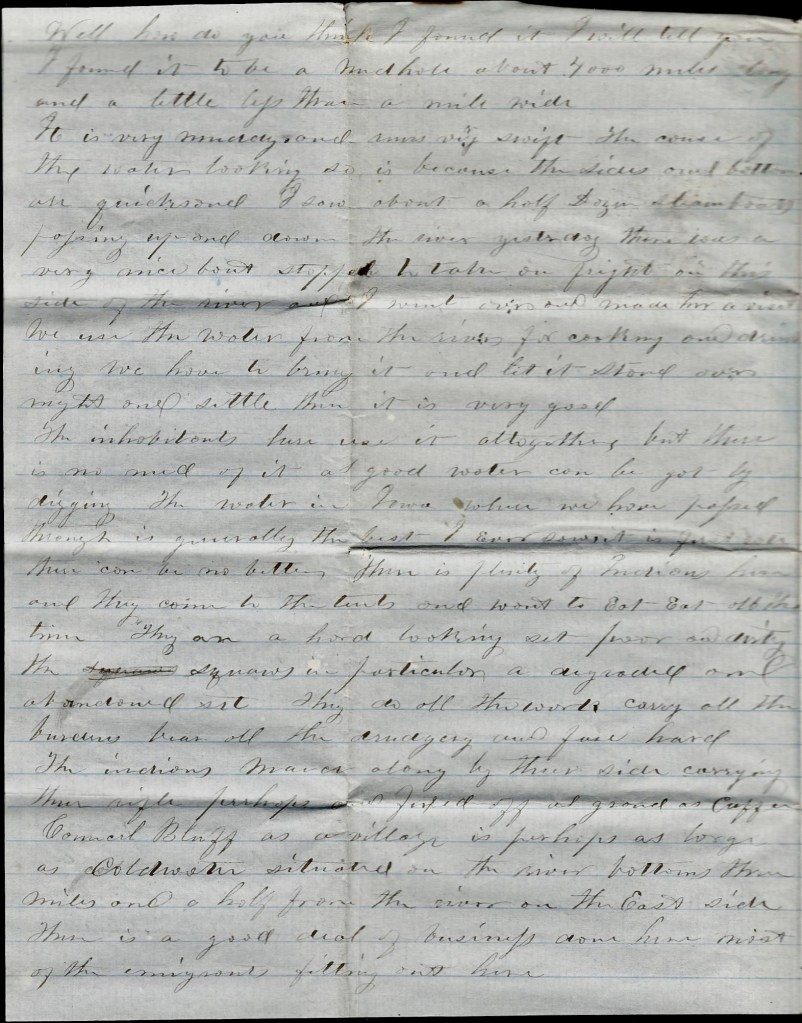 Well how do you think I found it I will tell you
I found it to be a mudhole about 4000 miles long
and a little less than a mile wide
It is very muddy and runs very swift The cause of
the water looking so is because the sides and bottom
are quicksand I saw about a half Dozen steamboats
passing up and down the river yesterday there was a
very nice boat stopped to take on fright on this
side of the river and I went over and made her a visit
We use the water from the river for cooking and drink
ing We have to bring it and let it stand over
night and settle then it is very good
The inhabitants here use it altogather but there
is no need of it as good water can be got by
digging The water in Iowa where we have passed
through is generally the best I Ever saw it is
there can be no better There is plenty of Indians here
and they come to the tents and want to Eat Eat all the
time They are a hard looking set poor and dirty
the squaws squaws in particular a degraded and
abandoned set They do all the work carry all the
burdens bear all the drudgery and fare hard
The indians march along by their side carrying
their rifle perhaps and fixed off as grand as
Council Bluff as a village is perhaps as large
as Coldwater situated on the river bottoms three
miles and a half from the river on the East side
There is a good deal of business done here most
of the emigrants fitting out here